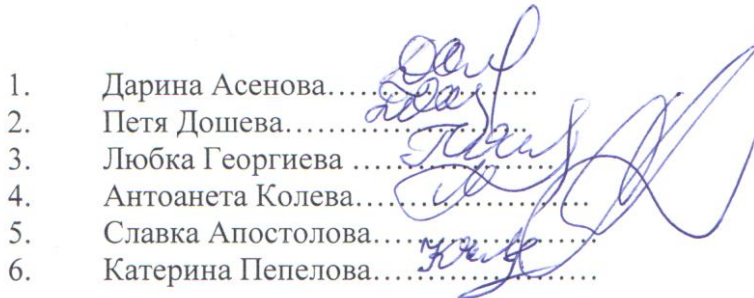 1. Дарина Асенова……………………..
2. Петя Дошева……………………
3. Любка Георгиева ……………
4. Антоанета Колева……………………
5. Славка Апостолова……………………
6. Катерина Пепелова……………………